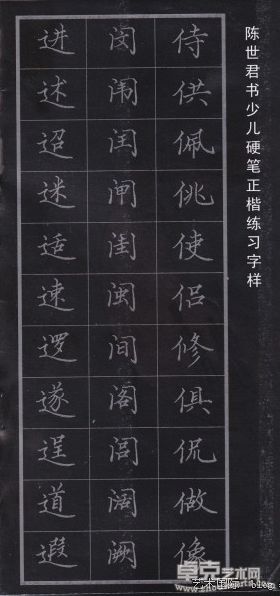 陈世君书少儿硬笔正楷练习字样
侍供佩佻使侣修俱侃做像
闵闹闰闸闺闽间阁闾阔阙
进述迢迷适速逻遂逞道遐
卓克艺术网
艺术国际 blog